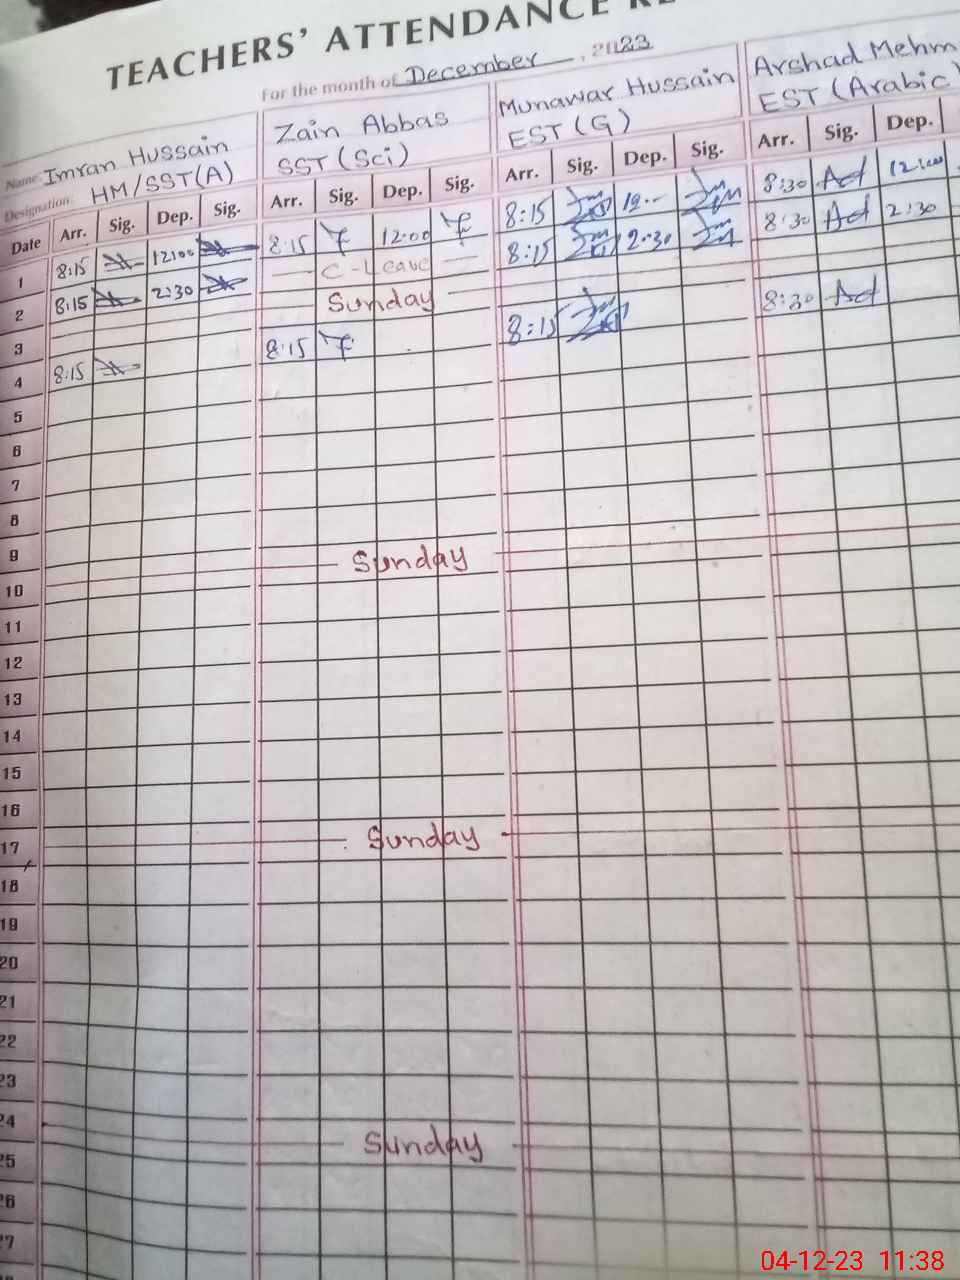 TEACHERS' ATTENDANCE
For the month of December, 2023
Name Imran Hussain Zain Abbas Munawar Hussain Arshad Mehm
Designation HM/SST(A) SST (Sci) EST (G) EST (Arabic)
Date Arr. Sig. Dep. Sig. Arr. Sig. Dep. Sig. Arr. Sig. Dep. Sig. Arr. Sig. Dep.
1 8:15 12:00 8:15 12:00 8:15 12-- 8:30 12:00
2 8:15 2:30 C-Leave 8:15 2:30 8:30 2:30
3 Sunday
4 8:15 8:15 8:15 8:30
5
6
7
8
9
10 Sunday
11
12
13
14
15
16
17 Sunday
18
19
20
21
22
23
24 Sunday
25
26
27
04-12-23 11:38